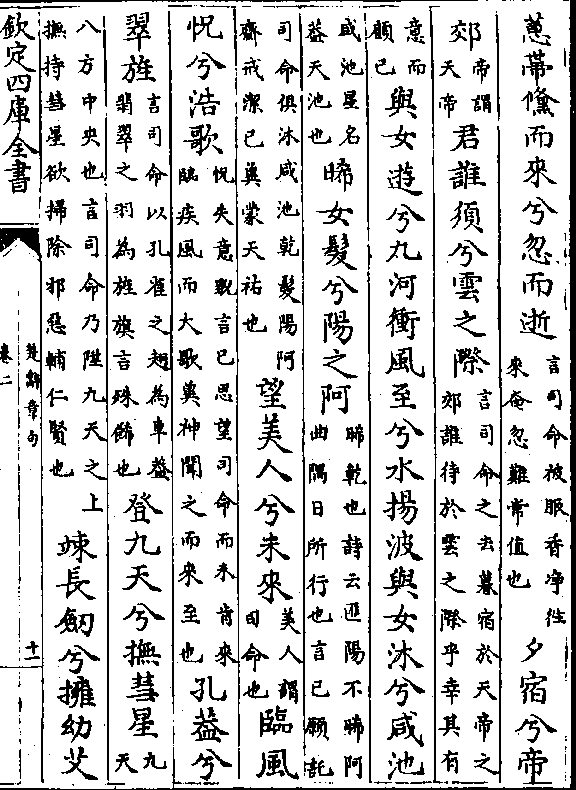 蕙帶儵而來兮忽而逝言司命被服香净往來奄忽難常值也夕宿兮帝
郊帝謂天帝君誰須兮雲之際言司命之去暮宿於天帝之郊誰待於雲之際乎幸其有
意而顧已與女遊兮九河衝風至兮水揚波與女沐兮咸池
咸池星名葢天池也晞女髮兮陽之阿晞乾也詩云匪陽不晞阿曲隅日所行也言已願託
司命俱沐咸池乾髮陽阿齋戒潔已兾蒙天祐也望美人兮未來美人謂司命也臨風
怳兮浩歌怳失意貌言已思望司命而未肯來臨疾風而大歌兾神聞之而來至也孔葢兮
翠旌言司命以孔雀之翅為車葢翡翠之羽為旌旗言殊飾也登九天兮撫彗星九天
八方中央也言司命乃陞九天之上撫持彗星欲掃除邪惡輔仁賢也竦長劒兮擁幼艾
欽定四庫全書
楚辭章句
卷二
十一